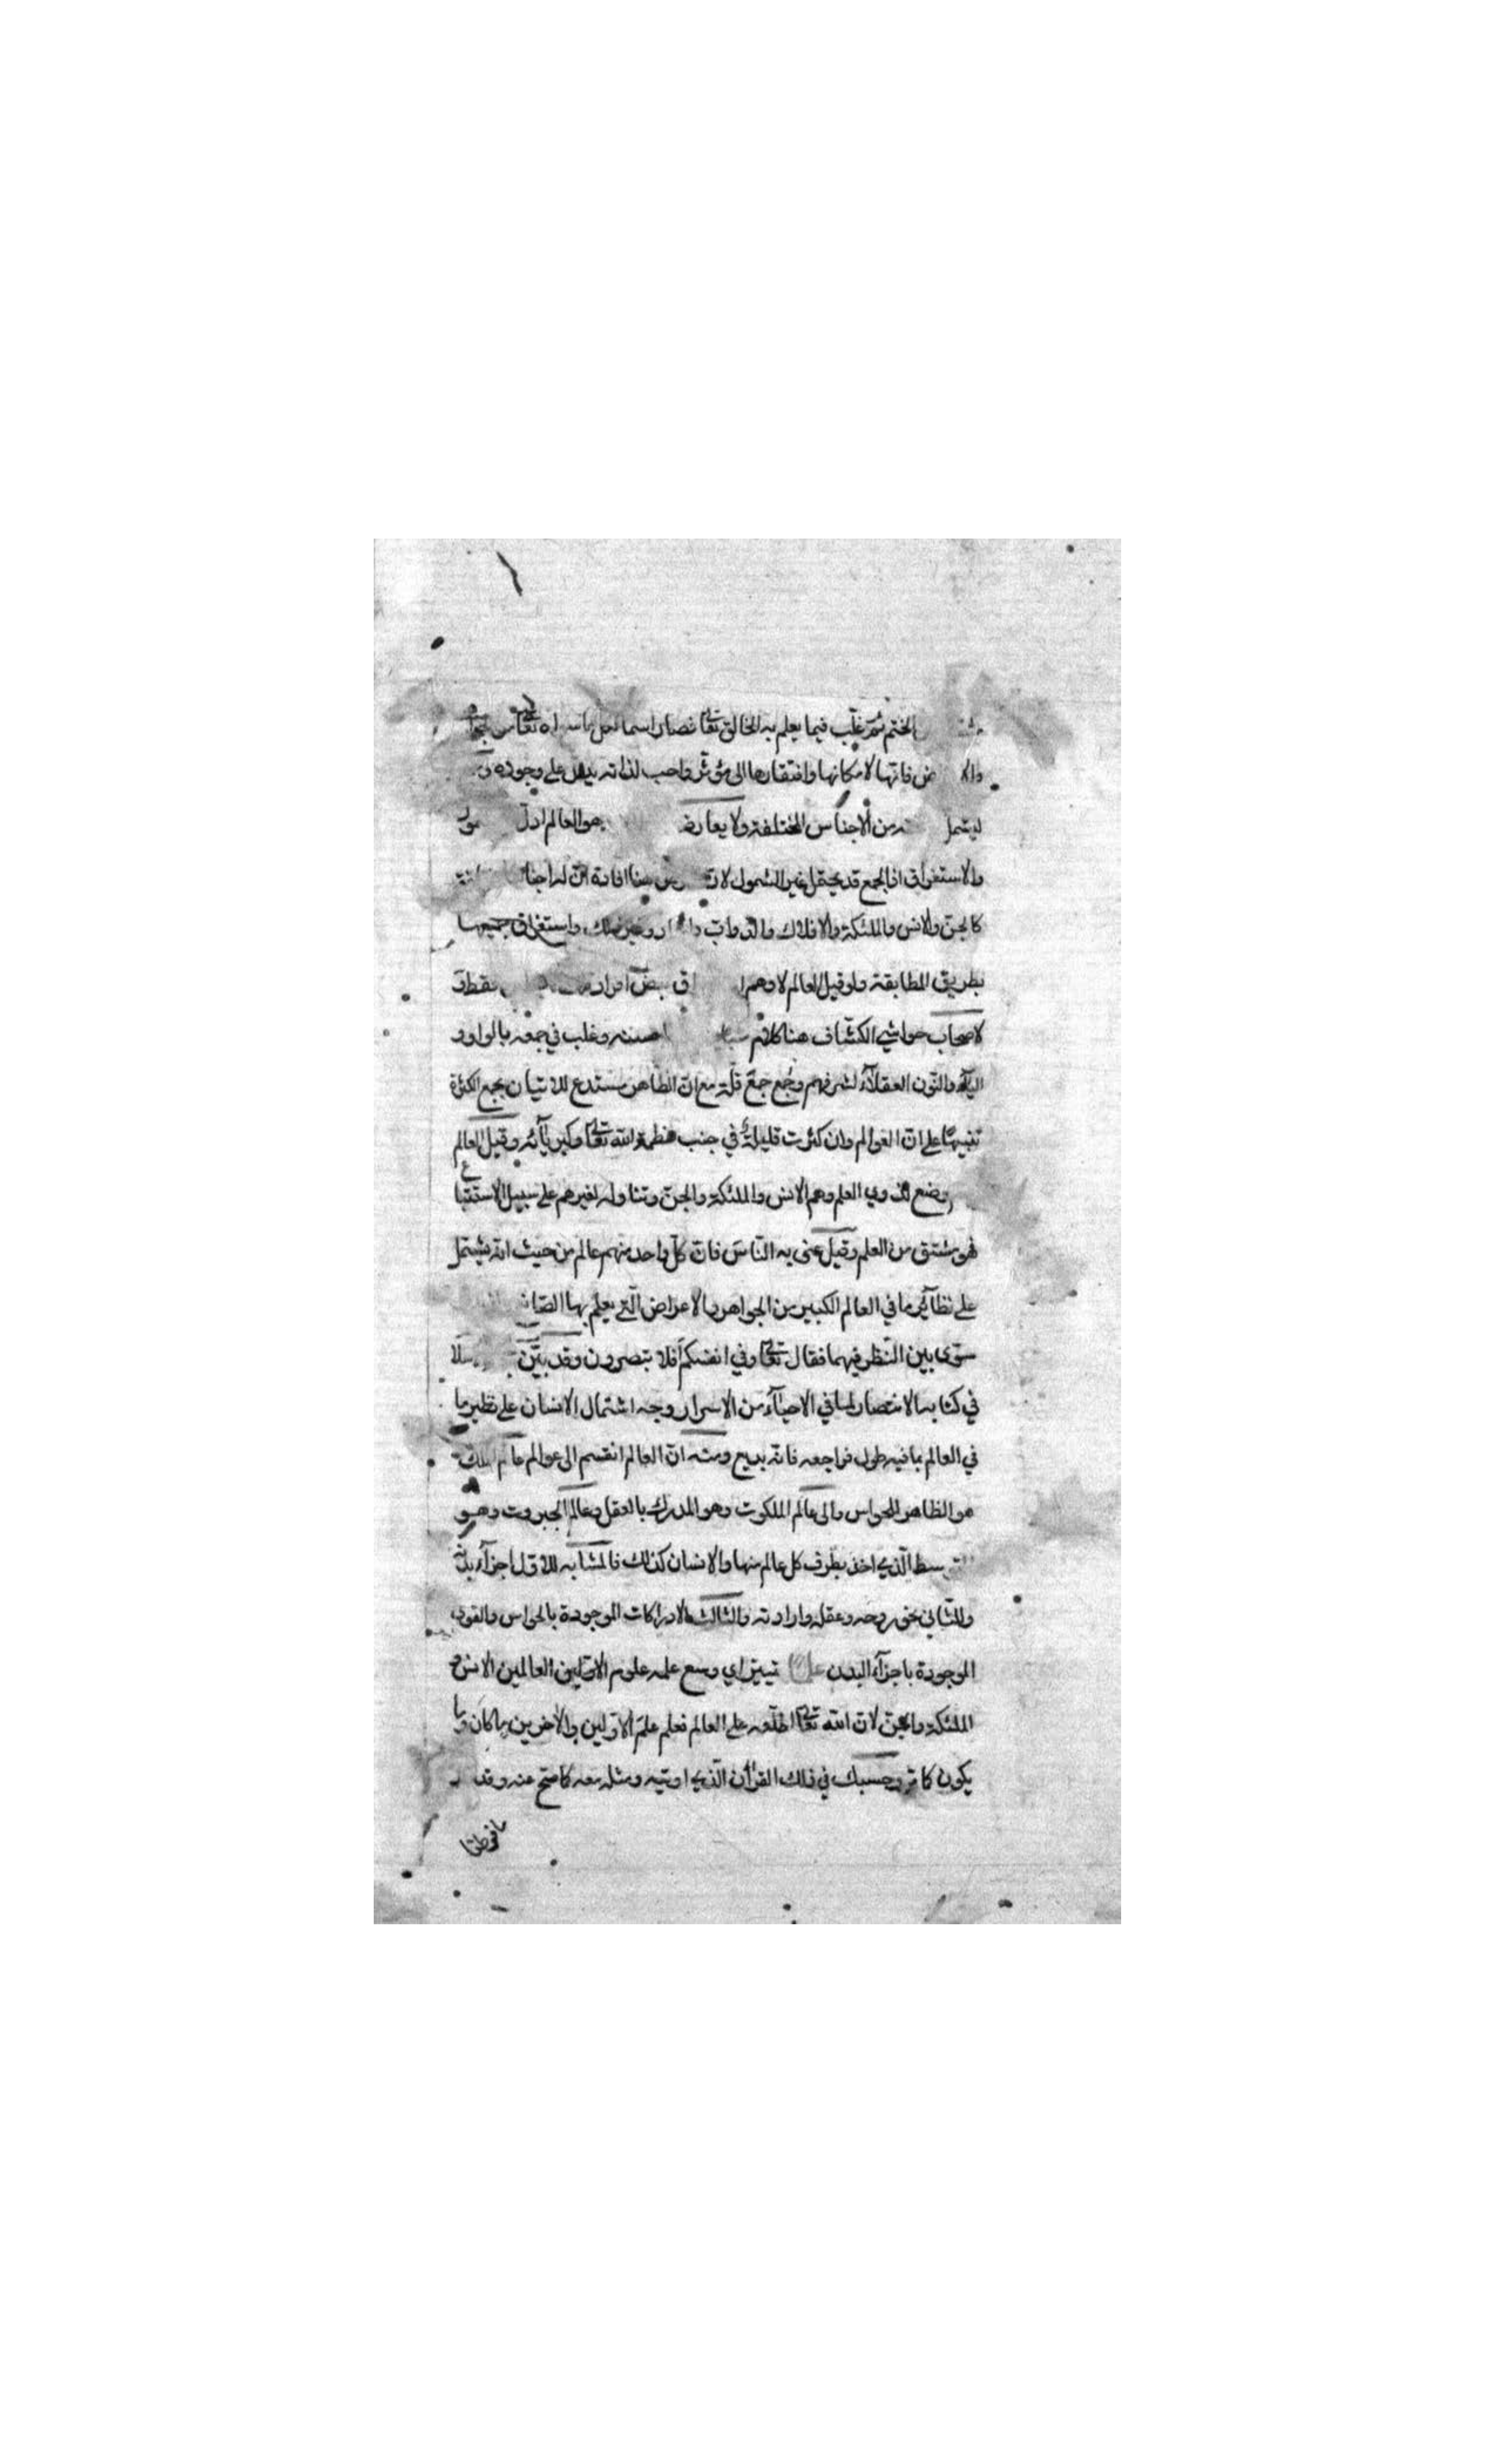 الختم ثمّ غلّب فيما يعلم به الخالق تعالى فصار اسما لكل ما سواه تعالى من
فانّها لامكانها وافتقارها الى مؤثّر واجب لذاته يدلّ على وجوده
ليشمل من الاجناس المختلفة ولا يعارض هو العالم ادلّ
والاستغراق اذ الجمع قد يحتمل غير الشمول لانّ هنا افادة انّ له اجناسا
كالجنّ والانس والملئكة والافلاك والدّوابّ وغير ذلك واستغراق جميعها
بطريق المطابقة ولو قيل العالم لاوهم بعض افراد فقط و
لاصحاب حواشي الكشّاف هنا كلام احسنه وغلب في جمعه بالواو و
الياء والنّون العقلاء لشرفهم وجُمع جمع قلّة مع انّ الظاهر مستدع للاتيان بجمع الكثرة
تنبيهًا على انّ العوالم وان كثرت قليلة في جنب عظمة الله تعالى وكبريآئه وقيل العالم
وضع لذوي العلم وهم الانس والملئكة والجنّ وتناوله لغيرهم على سبيل الاستتباع
فهو مشتق من العلم وقيل عنى به النّاس فانّ كلّ واحد منهم عالم من حيث انّه يشتمل
على نظآئر ما في العالم الكبير من الجواهر والاعراض الّتي يعلم بها الصّانع
سوّى بين النّظر فيهما فقال تعالى وفي انفسكم افلا تبصرون وقد بيّن
في كتابه الانتصار لما في الاحيآء من الاسرار وجه اشتمال الانسان على نظير ما
في العالم بما فيه طول فراجعه فانّه بديع ومنه انّ العالم انقسم الى عوالم عالم الملك
هو الظاهر للحواس والى عالم الملكوت وهو المدرك بالعقل وعالم الجبروت وهو
المتوسط الّذي اخذ بطرف كل عالم منها والانسان كذلك فالمشابه للاوّل اجزآء بدنه
والثّاني نحو روحه وعقله وارادته والثالث الادراكات الموجودة بالحواس والقوى
الموجودة باجزآء البدن علما تمييز اي وسع علمه علوم الاوّلين العالمين الانس و
الملئكة والجنّ لانّ الله تعالى اطلعه على العالم فعلم علم الاوّلين والآخرين ما كان وما
يكون كما مرّ وحسبك في ذلك القرآن الّذي اوتيه ومثله معه كما صحّ عنه وقد